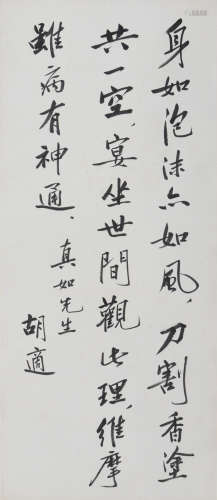 身如泡沫亦如風，刀割香塗
共一空，宴坐世間觀此理，維摩
雖病有神通，
真如先生
胡適